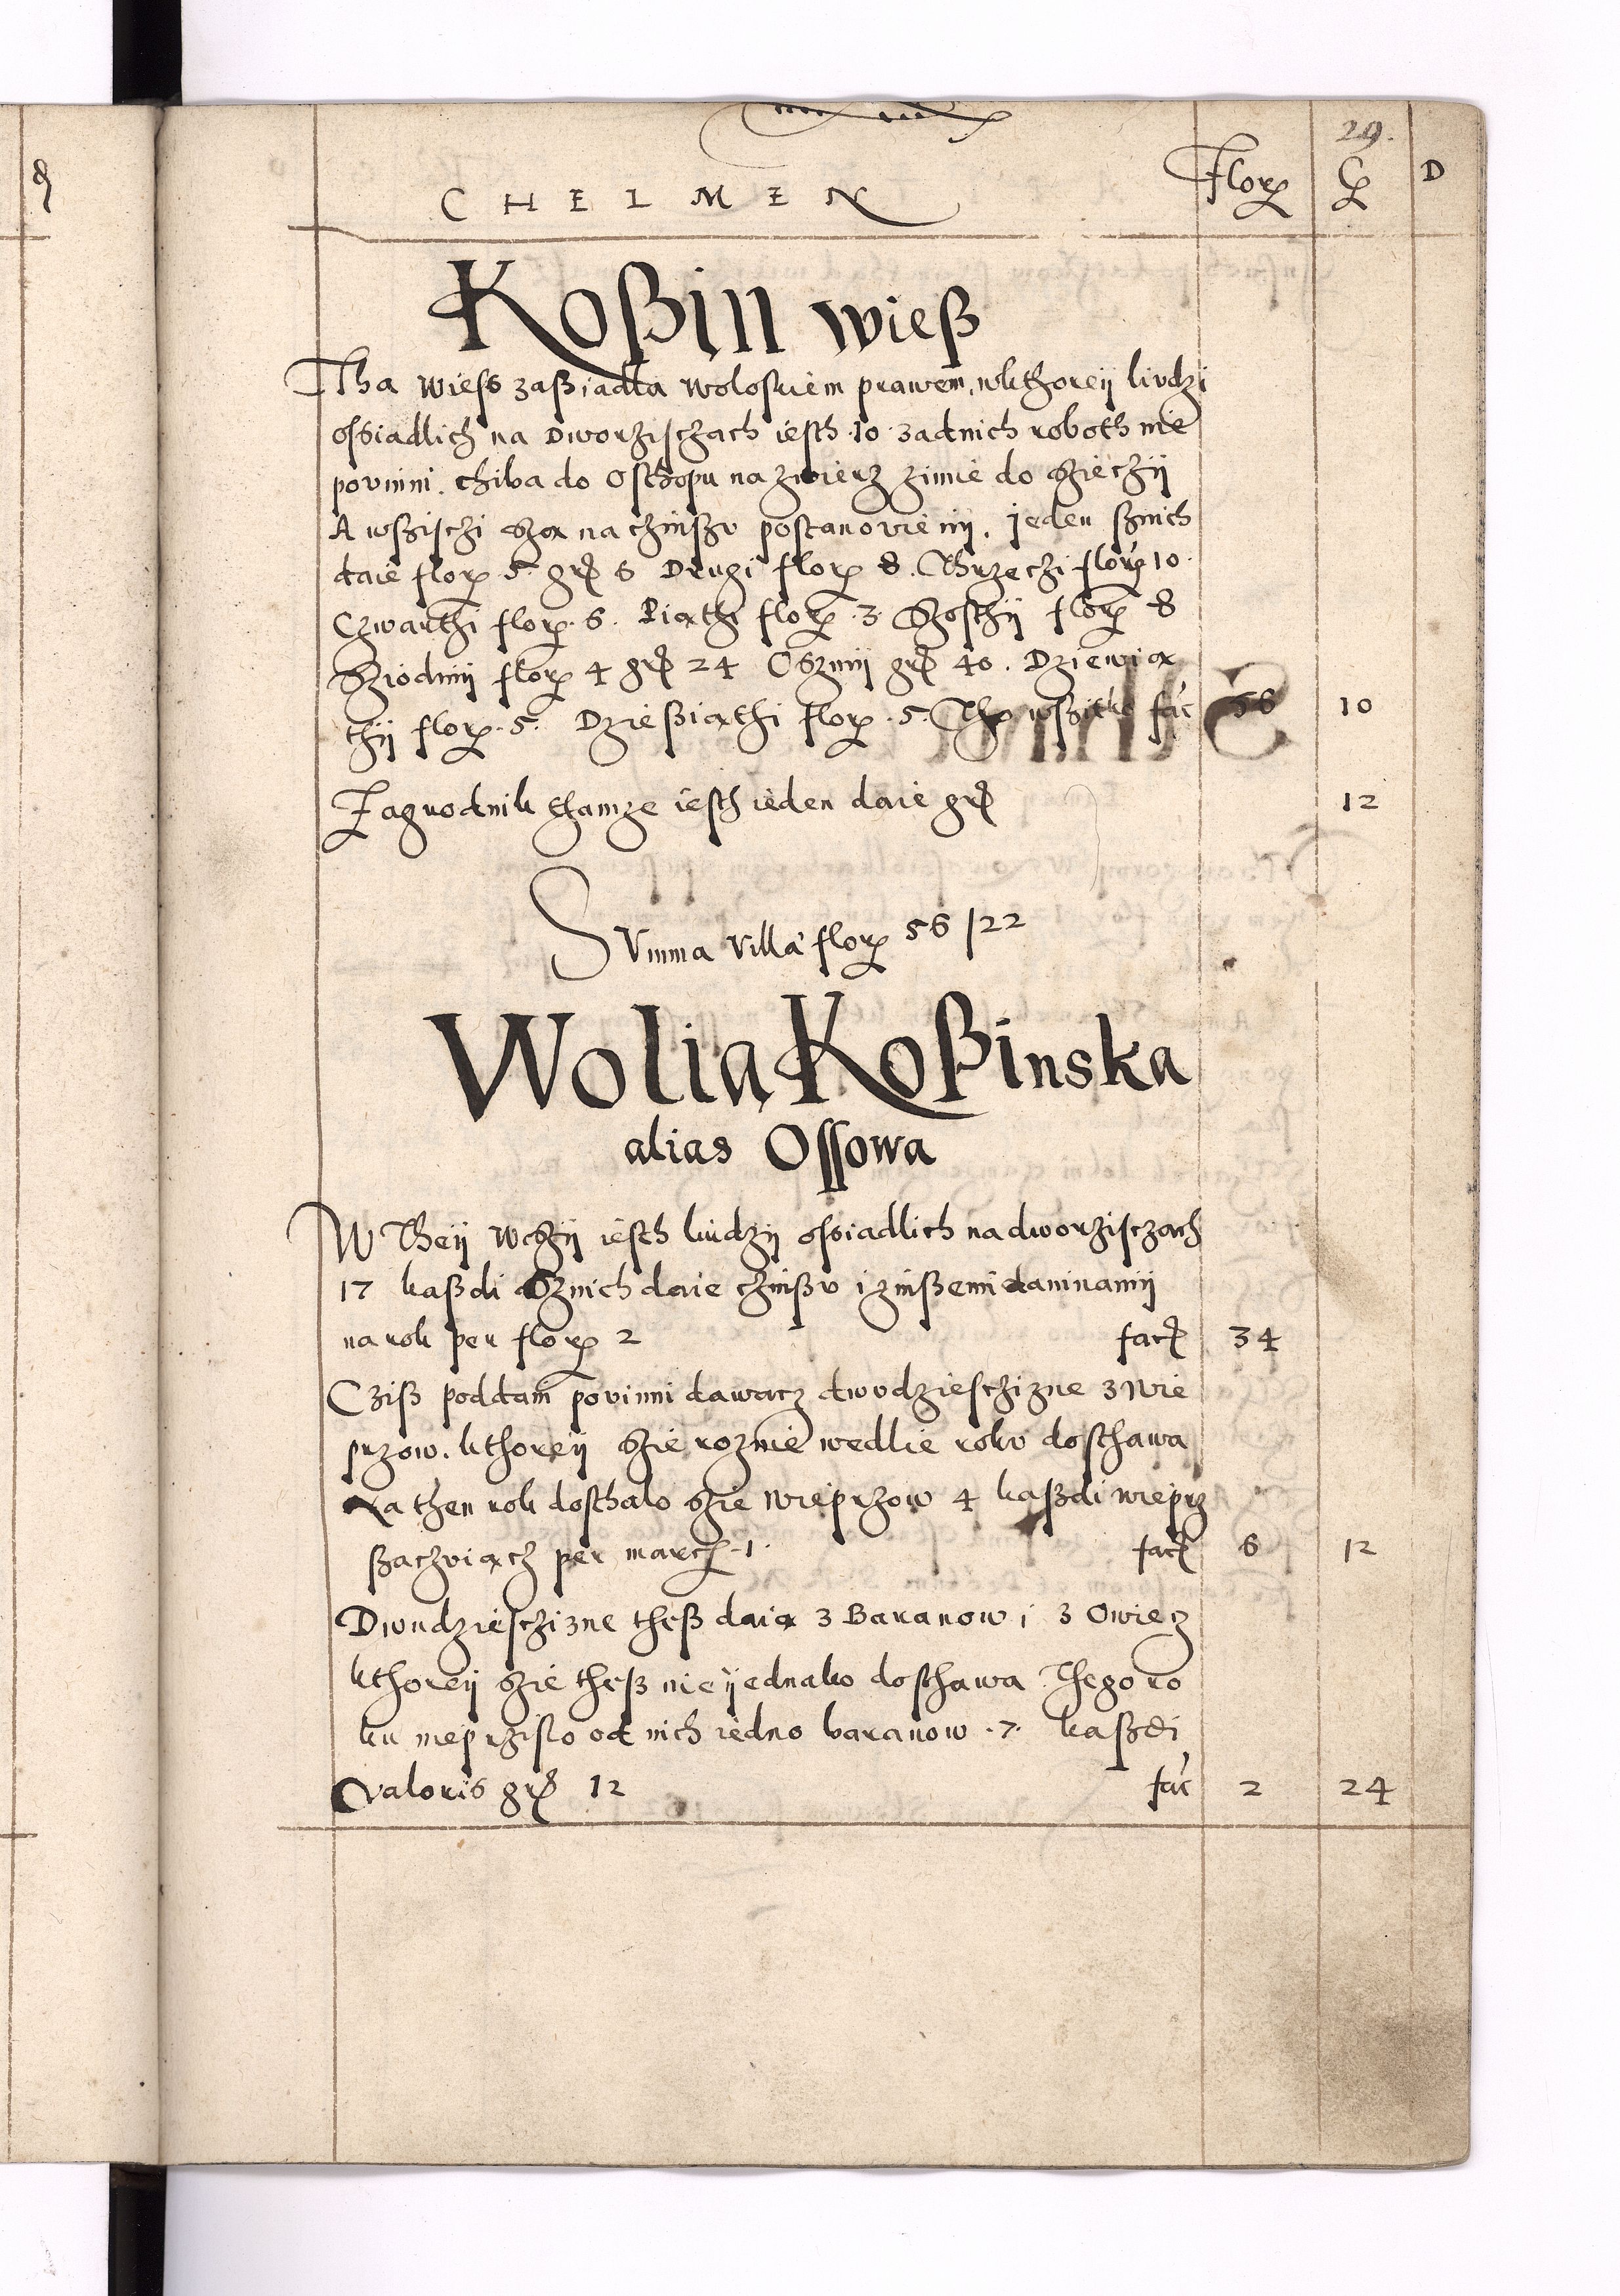 29.
CHELMEN Flor Gr D
Koßin wieß
Tha wiess zaßiadła woloskiem prawem, wkthoreÿ liudzi
ossiadlich na dworziſczach iesth 10 zadnich roboth nie
povinni. chiba do osthopu na zwierz zimie do SziechÿA wßiſchi Sza na chinßv postanowienÿ. jeden sznich
daie flor 5 gr 6 Drugi flor 8. Thrzeczi flor 10.
Czwarthi flor. 6. Piąthi flor. 3. Szosthÿ flor 8
Sziodmÿ flor 4 gr 24 Oszmÿ gr 40. Dziewią
thÿ flor. 5. Dzießiąthi flor. 5. Tho wßitko fac 56 10
Zagrodnik thamze iesth ieden daie gr 12
Svmma villæ flor 56 /22
Wolia Koßinska
alias Ossowa
W Theÿ wsÿ iesth liudzÿ ossiadlich na dworziſczach
17 kaßdi Sznich daie chinßv i zinßemi daninamÿ
na rok per flor 2 fac 34
Cziß poddani povinni dawacz dwvdzieschizne z wie
przow. kthoreÿ Szie roznie wedlie rokv dosthawa
Na then rok dosthalo Szie wieprzow 4 kaßdi wieprz
ßaczviącz per march. 1. fact 6 12
Dwudzieschizne theß daią z Baranow i z Owiecz
kthoreÿ Szie theß nie ÿednako dosthawa Thego ro
ku nieprzislo od nich iedno baranow .7. kaßdi
valoris gr 12 fac 2 24